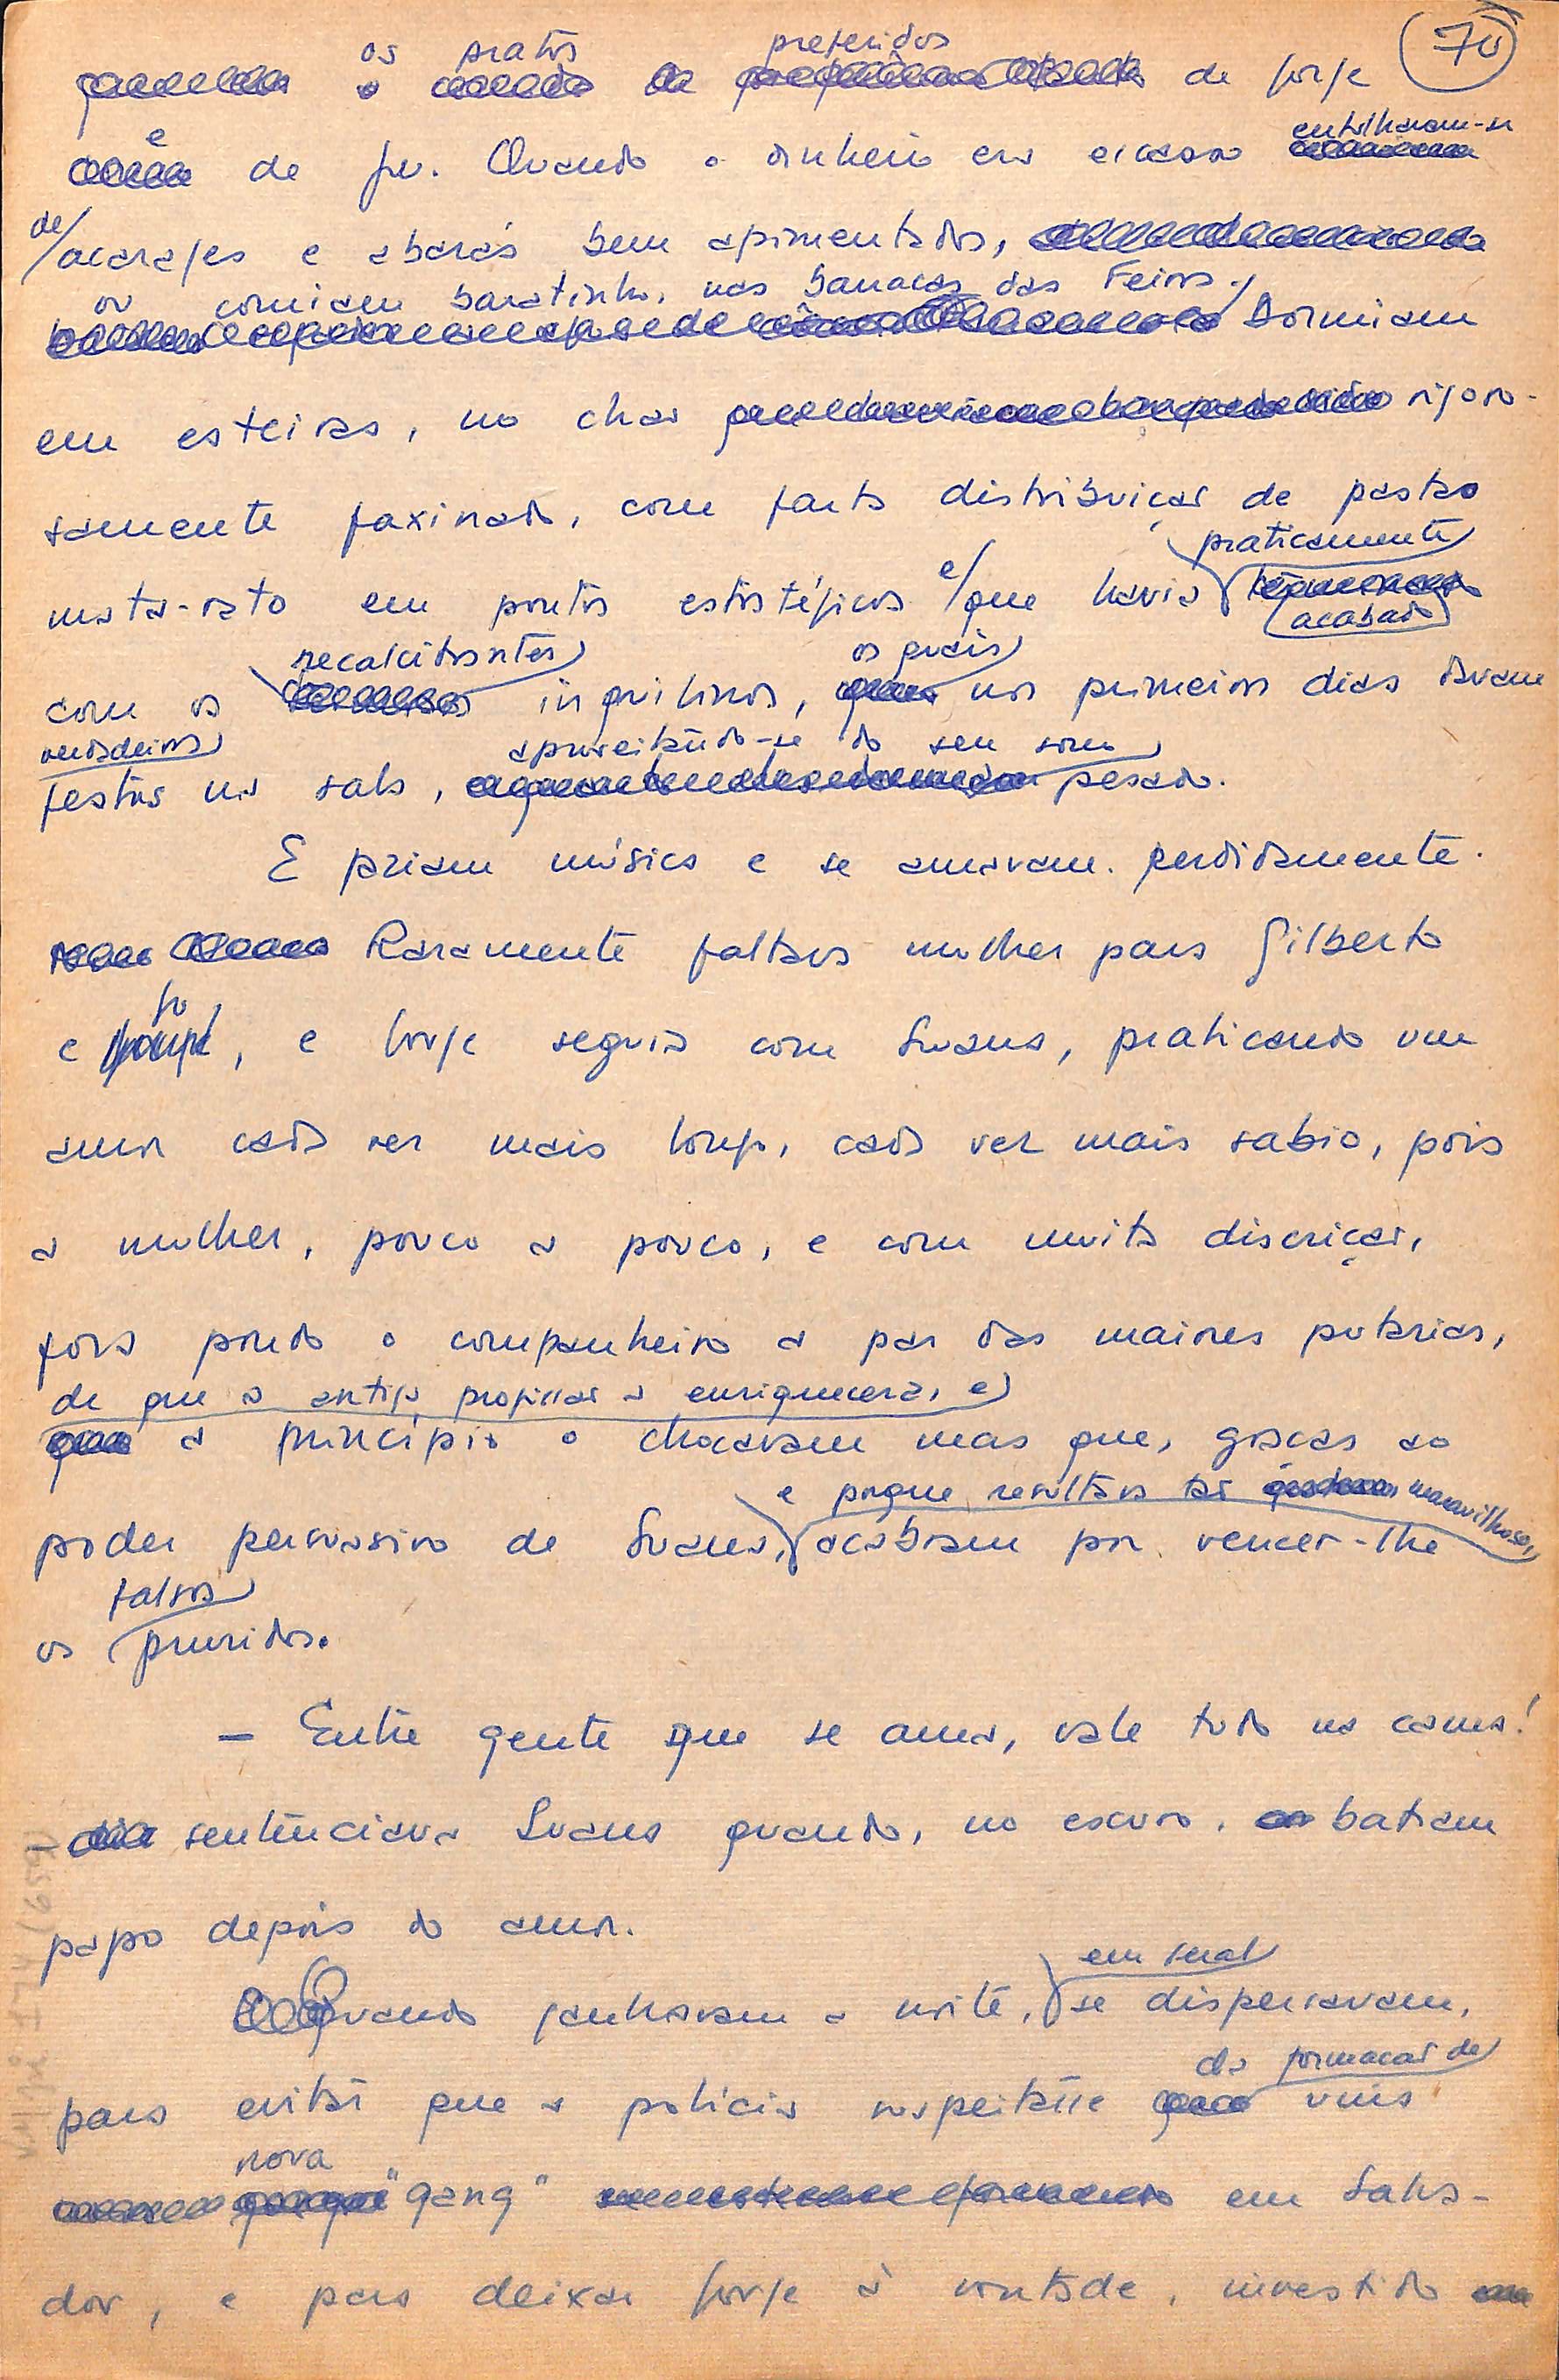 70
os pratos preferidos
de Jorge
e
de Ju. Quando o dinheiro era escasso entulhavam-se
de acarajés e abarás bem apimentados,
ou comiam baratinho, nas barracas das Feiras. Dormiam
em esteiras, no chão rigoro-
samente faxinado, com farta distribuição de pastas
mata-rato em pontos estratégicos e que havia praticamente
acabado
com os recalcitrantes inquilinos, os quais nos primeiros dias davam
verdadeiras
festas na sala, aproveitando-se do seu sono pesado.
E ouviam música e se amavam perdidamente.
Raramente faltava mulher para Gilberto
e Ju, e Jorge seguia com Luana, praticando um
amor cada vez mais longo, cada vez mais sabio, pois
a mulher, pouco a pouco, e com muita discrição,
fora pondo o companheiro a par das maiores putarias,
de que a antiga profissão a enriquecera, e
a princípio o chocavam mas que, graças ao
e porque resultava tão maravilhoso,
poder persuasivo de Luana, acabavam por vencer-lhe
falsos
os pruridos.
— Entre gente que se ama, vale tudo na cama!
- sentenciava Luana quando, no escuro, batiam
papo depois do amor.
Quando ganhavam a noite, em geral se dispersavam,
para evitar que a polícia suspeitasse da formação de uma
nova "gang" em Salva-
dor, e para deixar Jorge à vontade, investido